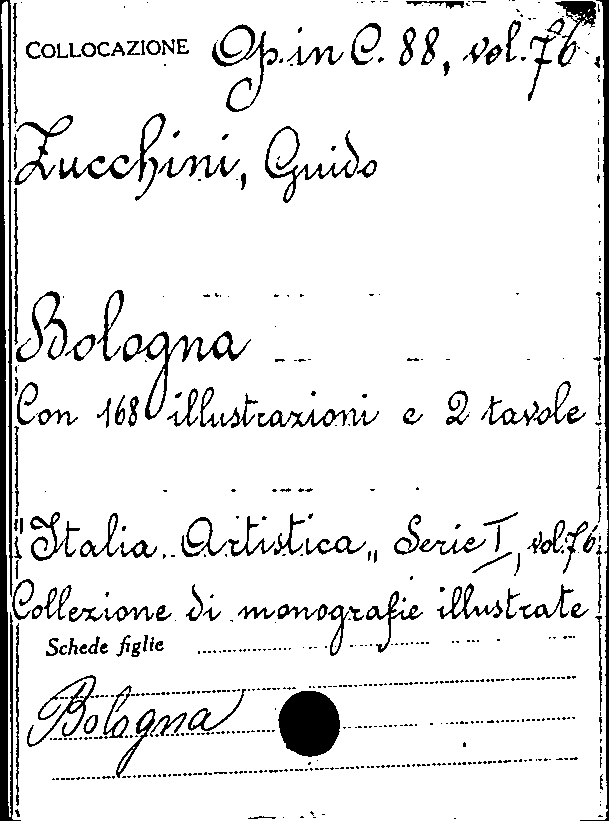 COLLOCAZIONE Op. in C. 88, vol. 76.
Zucchini, Guido
Bologna
Con 168 illustrazioni e 2 tavole
"Italia Artistica„ Serie I, vol. 76.
Collezione di monografie illustrate
Schede figlie
Bologna